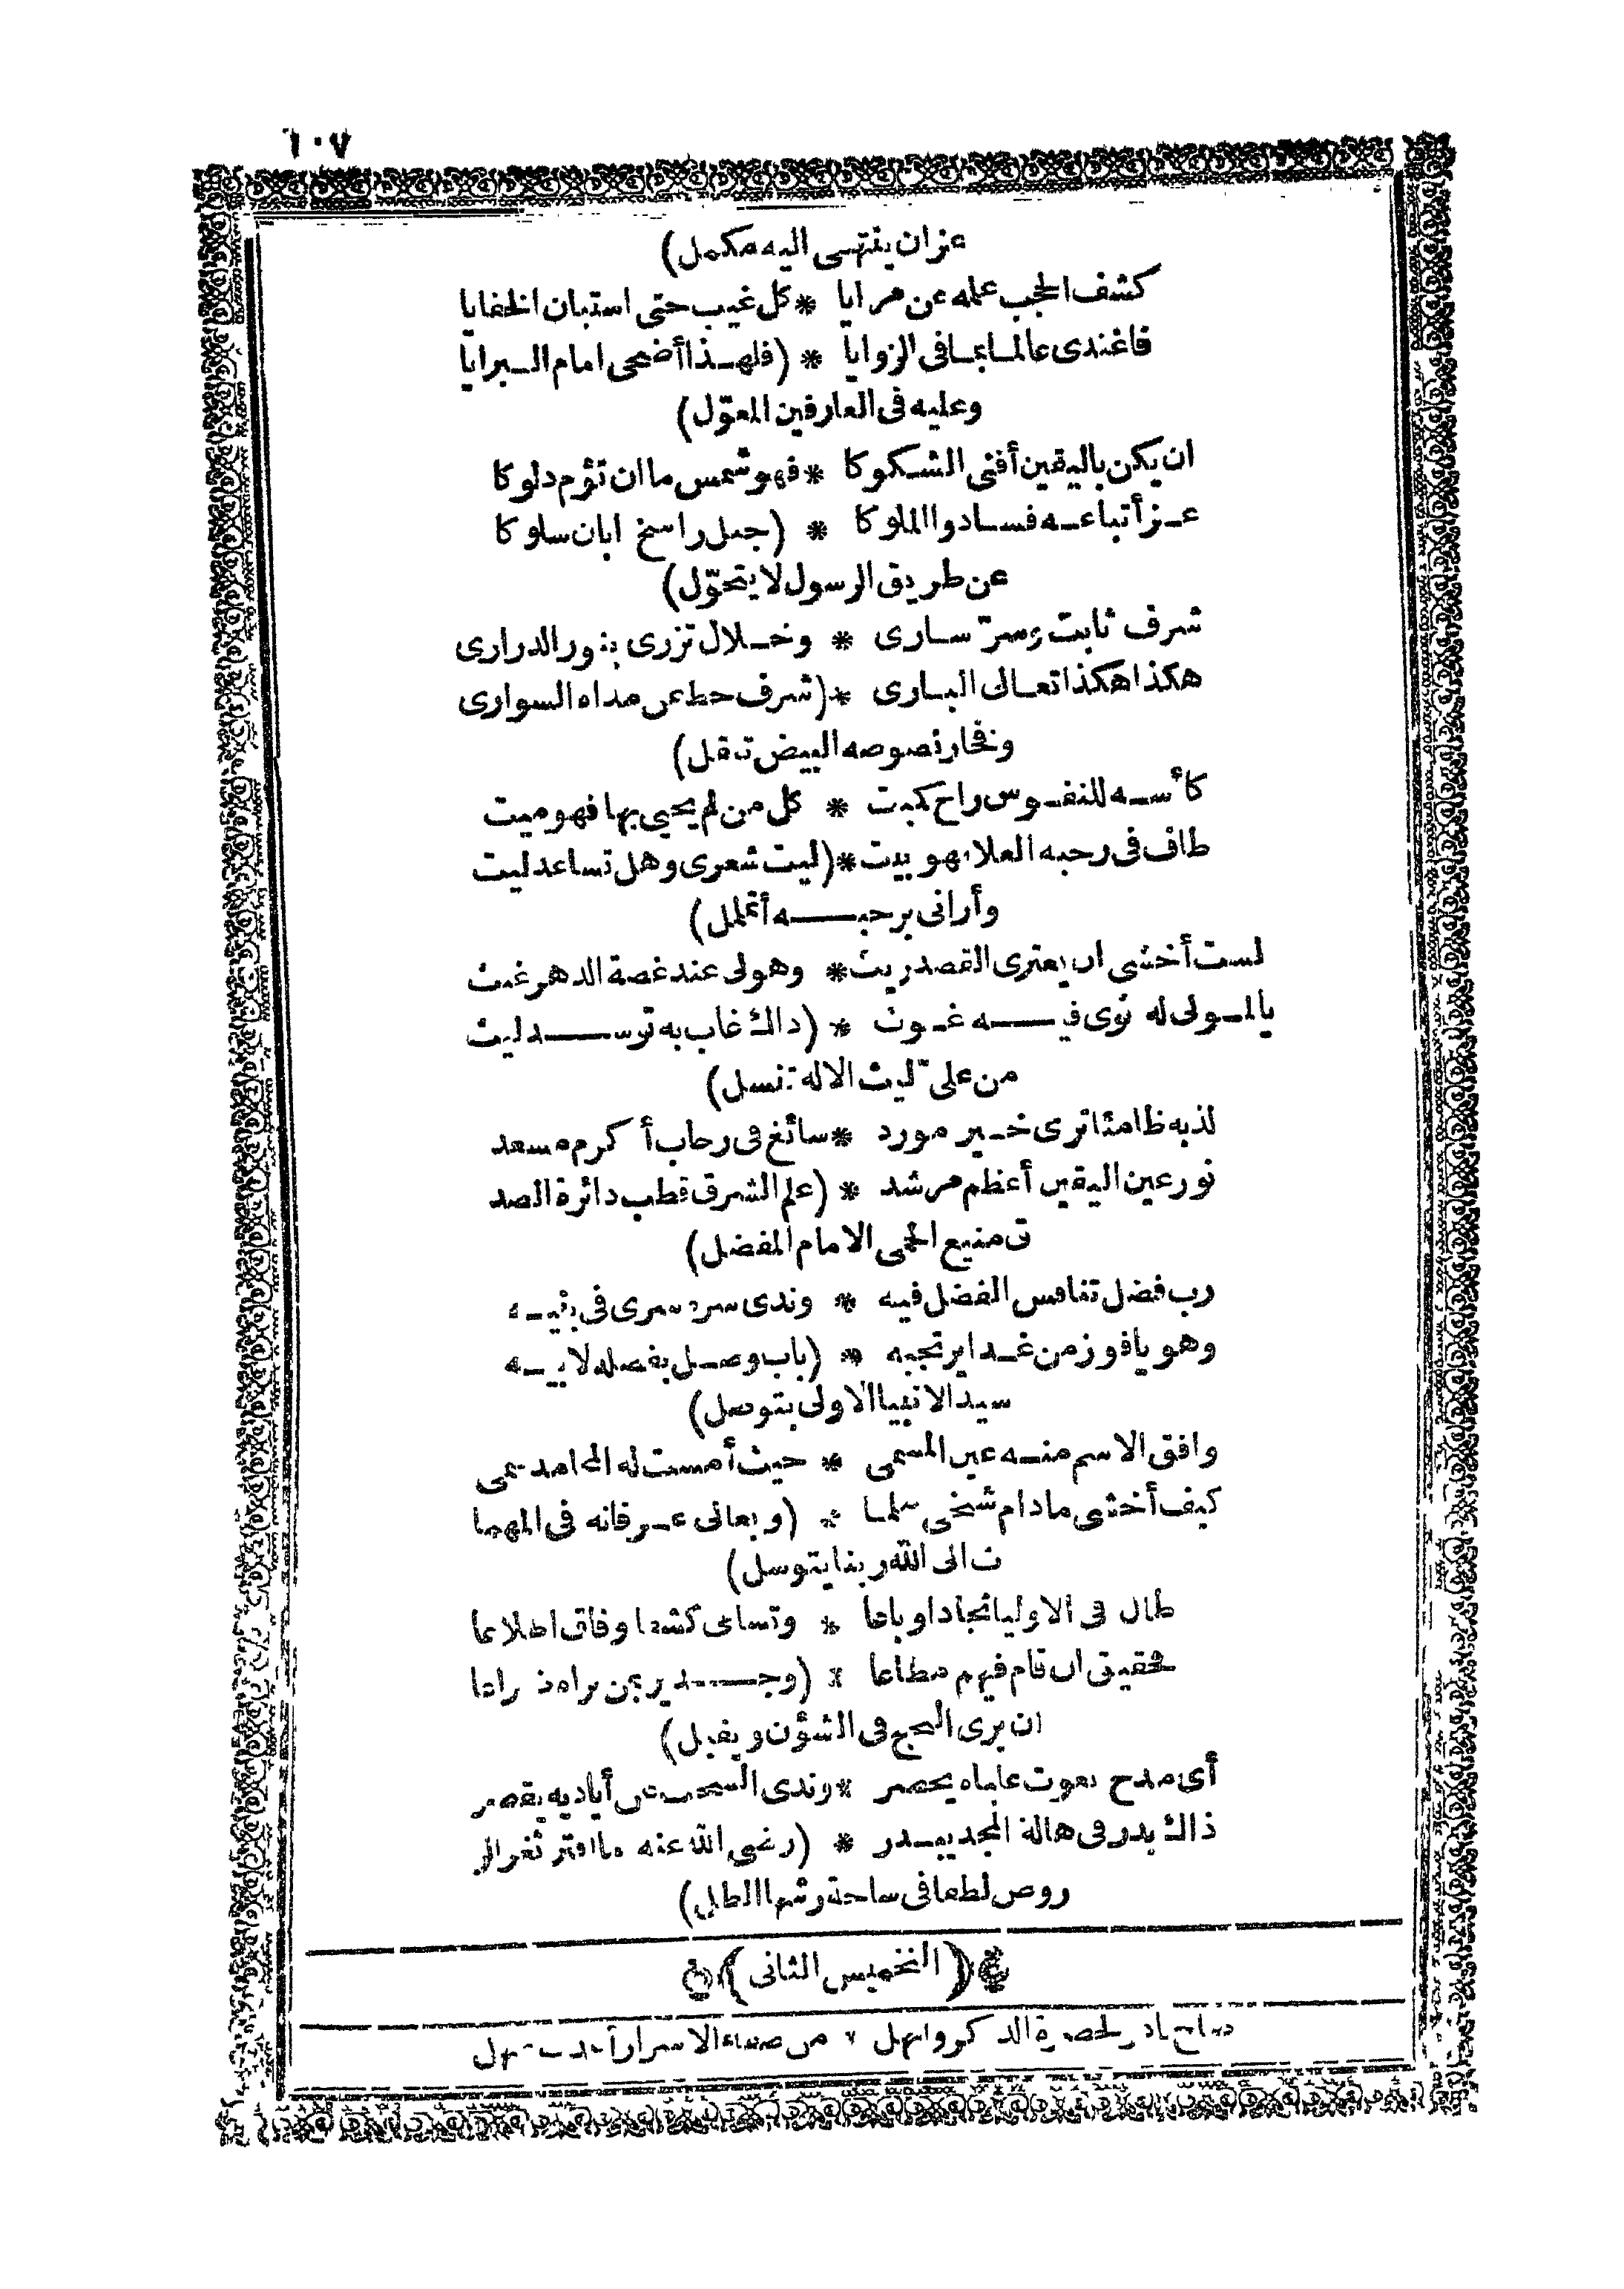 ١٠٧
عزان ينتهى اليه مكمل)
كشف الحجب علمه عن مرايا * كل غيب حتى استبان الخفايا
فاغتدى عالما بما فى الزوايا * (فلهذا أضحى امام البرايا
وعليه فى العارفين المعوّل)
ان يكن باليقين أفنى الشكوكا * فهو شمس ما ان تؤم دلوكا
عز أتباعه فسادوا الملوكا * (جبل راسخ ابان سلوكا
عن طريق الرسول لا يتحوّل)
شرف ثابت وسرّ سارى * وخلال تزرى بنور الدرارى
هكذا هكذا تعالى البارى * (شرف حط عن مداه السوارى
وفخار نصوصه البيض تنقل)
كأسه للنفوس راح كميت * كل من لم يحيى بها فهو ميت
طاف فى رحبه العلا فهو بيت * (ليت شعرى وهل تساعد ليت
وأرانى برحبه أتململ)
لست أخشى ان يعترى القصد ريث * وهو لى عند غصة الدهر غيث
يالمولى له نوى فيه غوث * (ذاك غاب به توسد ليث
من على ليث الاله تنسل)
لذ به ظامئا ترى خير مورد * سائغ فى رحاب أكرم مسعد
نور عين اليقين أعظم مرشد * (علم الشرق قطب دائرة الصد
ق منيع الحمى الامام المفضل)
رب فضل تنافس الفضل فيه * وندى سره سرى فى بنيه
وهو يافوز من غدا يرتجيه * (باب وصل بفضله لابيه
سيد الانبيا الاولى يتوصل)
وافق الاسم منه عين المسمى * حيث أمست له المحامد تمى
كيف أخشى مادام شيخى سلما * (وبعالى عرفانه فى المهما
ت الى الله ربنا يتوسل)
طال فى الاوليا نجادا وباعا * وتسامى كشفا وفاق اطلاعا
فحقيق ان قام فيهم مطاعا * (وجدير بمن يراه ذراعا
ان يرى النجح فى الشؤن ويقبل)
أى مدح نعوت علياه يحصر * وندى السحب عن أياديه يقصر
ذاك بدر فى هالة المجد يبدر * (رضى الله عنه ما افتر ثغر الر
روض لطفا فى ساحة رشها الطل)
﴿التخميس الثانى﴾
لحضرة الذكر وانهل * من صفاء الاسرار